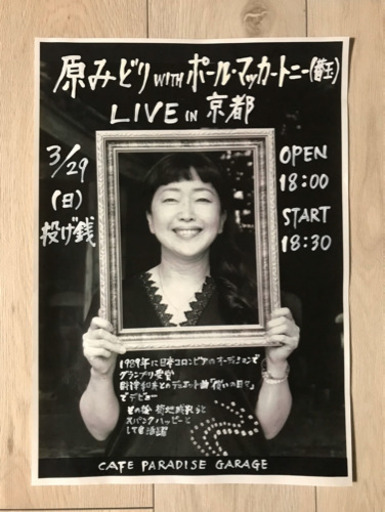 原みどり WITH ポール・マッカートニー(蕾王)
LIVE IN 京都
3/29
(日)
投げ銭
OPEN
18:00
START
18:30
1989年に日本コロンビアのオーディションで
グランプリ受賞
とのデュエット曲「償いの日々」
でデビュー
その後
スパンクハッピーと
して活躍
CAFE PARADISE GARAGE